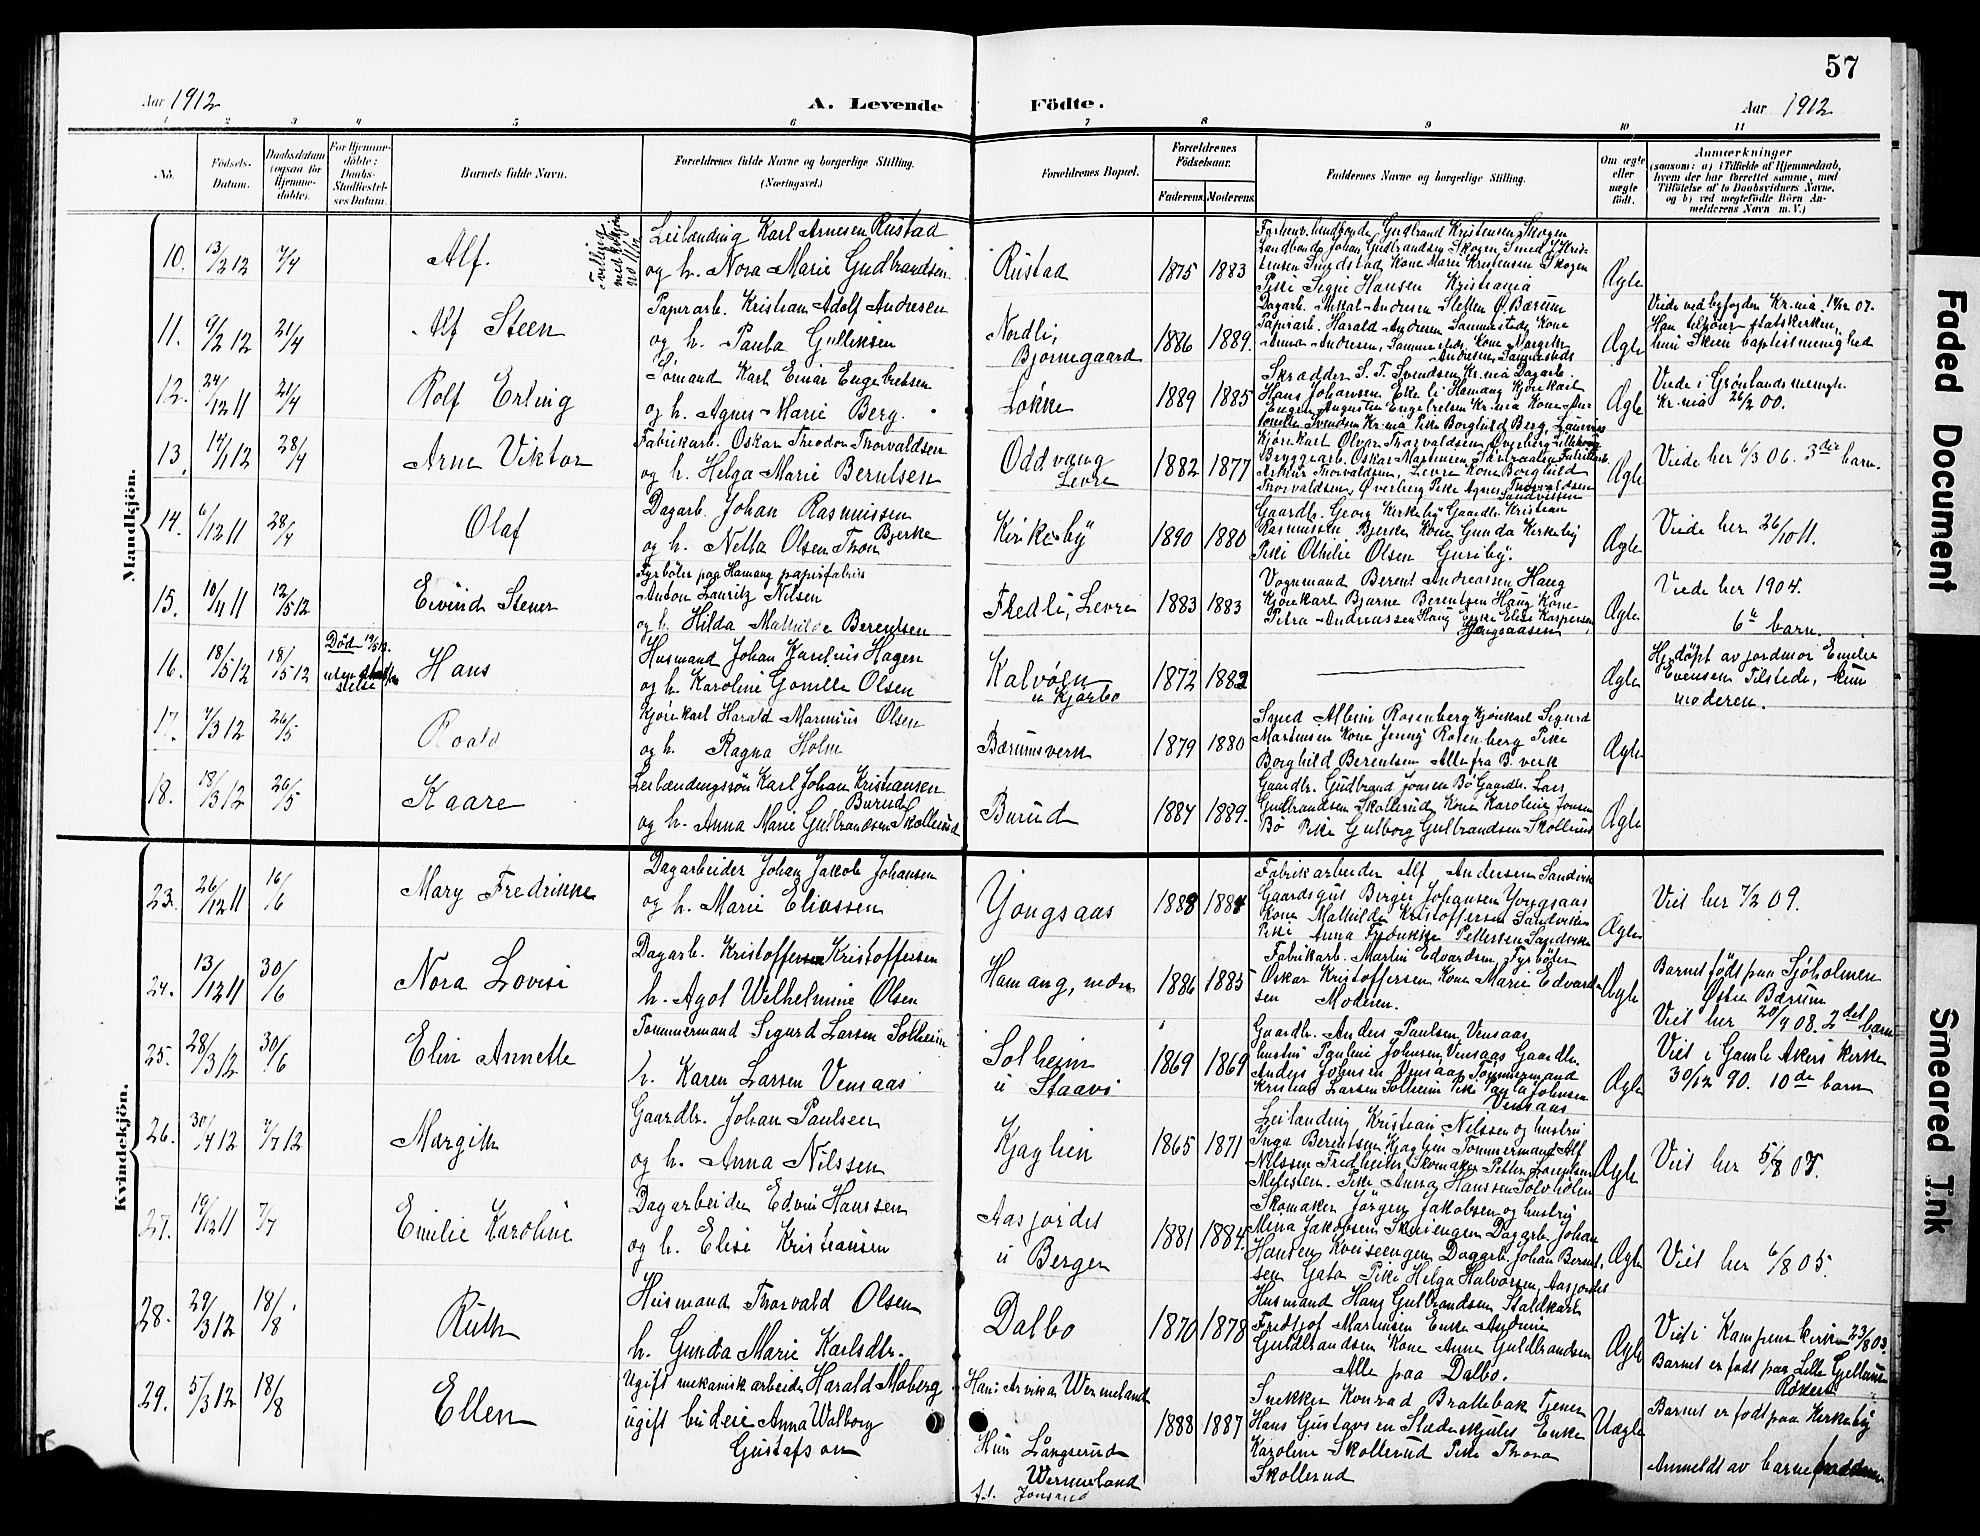 57
Aar 1912
A. Levende
Födte.
Aar 1912
1 2 3 4 5 6 7 8 9 10 11
No.
Födsels-Datum.
Daabsdatum (ogsaa for Hjemme-döbte).
For Hjemme-döbte: Daabs-Stadfæstel-ses Datum.
Barnets fulde Navn.
Forældrenes fulde Navne og borgerlige Stilling. (Næringsvei.)
Forældrenes Bopæl.
Forældrenes Födselsaar.
Faderens. Moderens.
Faddernes Navne og borgerlige Stilling.
Om ægte eller uægte födt.
Anmærkninger
(saasom: a) i Tilfælde af Hjemmedaab, hvem der har forrettet samme, med Tilföielse af to Daabsvidners Navne, og b) ved uægtefödte Börn An-melderens Navn m. V.)
Mandkjön.
10. 13/2 12 7/4 Alf.
Tvilling med
Leilænding Karl Arnesen Rustad
og h. Nora Marie Gudbrandsen
Rustad 1875 1883
Forhenv. landhandler Gudbrand Kristensen Skogen
Landbonde Johan Gudbrandsen Skogen Smed J. Kris-
tensen Kone Marie Kristensen Skogen
Pike Signe Hansen Kristiania
Ægte
11. 9/2 12 21/4 Alf Steen
Papirarb. Kristian Adolf Andresen
og h. Paula Gulliksen
Nordli, Bjornegaard 1886 1889.
Dagarb. Andresen Sletten Ø. Bærum
Papirarb. Harald Andresen Sammesteds Kone
Anna Andresen, Sammesteds Kone Margith
Andresen, Sammesteds
Ægte
Viede ved byfogden Kr.nia 07.
Han tilhører statskirken,
hun Skien baptistmenighed
12. 24/12 11 21/4 Rolf Erling
Sömand Karl Einar Engebretsen
og h. Agnes Marie Berg.
Løkke 1889 1885
Skrædder S. T. Svendsen Kr.nia Dagarb.
Hans Johansen Eke li Hamang Kjørekarl
Eugen Augustin Engebretsen Kr.nia Kone
Svendsen Kr.nia Pike Borghild Berg,
Ægte
Viede i Grønlands menigh.
Kr.nia 26/2 00.
13. 14/1 12 28/4 Arne Viktor
Fabrikarb. Oskar Theodor Thorvaldsen
og h. Helga Marie Berntsen
Oddvang Levre 1882 1877
Kjørekarl Oluv Thorvaldsen Øverberg
Bryggearb. Oskar Martinsen
Arthur Thorvaldsen, Levre Kone Borghild
Thorvaldsen, Øverberg Pike Agnes Thorvaldsen
Sandviken
Ægte
Viede her 6/3 06. 3die barn.
14. 6/12 11 28/4 Olaf
Dagarb. Johan Rasmussen Bjerke
og h. Netta Olsen Thon
Kirkeby 1890 1880
Gaardbr. Georg Kirkeby Gaardbr. Kristian
Rasmussen Bjerke Kone Gunda Kirkeby
Pike Othilie Olsen Gureby.
Ægte
Viede her 26/10 11.
15. 10/11 11 12/5 12 Eivind Stener
Fyrböter paa Hamang papirfabrik
Anton Lauritz Nilsen
og h. Hilda Mathilde Berentsen
Fredli, Levre 1883 1883
Vognmand Berent Andreassen Haug
Kjørekarl Bjarne Berentsen Haug Kone
Petra Andreassen Haug Enke Elise Kaspersen,
Yongsaasen
Ægte
Viede her 1904.
6te barn.
16. 18/5 12 18/5 12 Død
uten stadfæstelse
Hans
Husmand Johan Karelius Hagen
og h. Karoline Gonille Olsen
Kalvøen u Kjørbo 1872 1882
Ægte
Hj.döpt av jordmor Emilie
Evensen Tilstede, kun
moderen.
17. 7/3 12 26/5 Roald
Kjørekarl Harald Marinius Olsen
og h. Ragna Holm
Bærumsverk 1879 1880
Smed Albin Rosenberg Kjørekarl Sigurd
Martinsen Kone Jenny Rosenberg Pike
Borghild Berentsen Alle fra B. verk
Ægte
18. 18/3 12 26/5 Kaare
Leilændingssön Karl Johan Kristiansen
Burud
og h. Anna Marie Gulbrandsen Skollerud
Burud 1884 1889.
Gaardbr. Gudbrand Jonsen Bö Gaardbr. Lars
Gudbrandsen Skollerud Kone Karoline Jonsen
Bö Pike Gulborg Gulbrandsen Skollerud
Ægte
Kvindekjön.
23. 26/12 11 16/6 Mary Fredrikke
Dagarbeider Johan Jakob Johansen
og h. Marie Eliassen
Yongsaas 1883 1884
Fabrikarbeider Alf Andersen Sandvik
Gaardsgut Birger Johansen Yongsaas
Kone Mathilde Kristoffersen Sandviken
Pike Anna Fredrikke Pettersen Sandviken
Ægte
Viet her 7/2 09.
24. 13/12 11 30/6 Nora Lovise
Dagarb. Kristoffer Kristoffersen
h. Agot Wilhelmine Olsen
Hamang, nedre 1886 1885
Fabrikarb. Martin Edvardsen, Fyrböter
Oskar Kristoffersen Kone Marie Edvard-
sen Moderen.
Ægte
Barnet födt paa Sjöholmen
Østre Bærum
Viet her 20/9 08. 2det barn
25. 28/3 12 30/6 Elin Annette
Tömmermand Sigurd Larsen Solheim
h. Karen Larsen Vensaas
Solheim u Staavi 1869 1869
Gaardbr. Anders Paulsen Vensaas
hustru Pauline Johnsen Vensaas Gaardbr.
Anders Johnsen Vensaas Tömmermand
Kristian Larsen Solheim Pike Paula Johnsen
Vensaas
Ægte
Viet i Gamle Akers kirke
30/12 90. 10de barn
26. 30/4 12 7/7 12 Margith
Gaardbr. Johan Paulsen
og h. Anna Nilssen
Kjaglien 1865 1871
Leilænding Kristian Nilssen og hustru
Inga Berentsen Kjaglien Tömmermand Alf
Nilssen Fredheim Skomaker Petter Lorentsen
Pike Anna Hanssen Sölvhölen
Ægte
Viet her 5/8 05.
27. 19/12 11 7/7 Emilie Karoline
Dagarbeider Edvin Hanssen
og h. Elise Kristiansen
Aasjordet u Berger 1881 1884.
Skomaker Jörgen Jakobsen og hustru
Mina Jakobsen Skuiengen Dagarb. Johan
Hansen Kveiseengen Dagarb. Johan Bernt-
sen Gata Pike Helga Halvorsen, Aasjordet
Ægte
Viet her 6/8 05.
28. 29/3 12 18/8 Ruth
Husmand Thorvald Olsen
h. Gunda Marie Karlsdtr.
Dalbo 1870 1878
Husmand Hans Gulbrandsen, Staldkarl
Fredtjof Martinsen Enke Andrine
Guldbrandsen Kone Anna Guldbrandsen
Alle paa Dalbo.
Ægte
Viet i Kampens kirke 23/8 03.
Barnet er født paa Lille Gjellum
Röken
29. 5/3 12 18/8 Ellen
Ugift mekanisk arbeider Harald Moberg
ugift budeie Anna Walborg
Gustafson
Han: Arvika Wermeland
Hun Långserud
Wermeland
1888 1887
Snekker Konrad Brattebak Tjener
Hans Gustavsen Enke
Karoline Skollerud Pike Thora
Skollerud
Uægte
Barnet er født paa Kirkeby
Anmeldt av barnefaderen
Faded Document
Smeared Ink